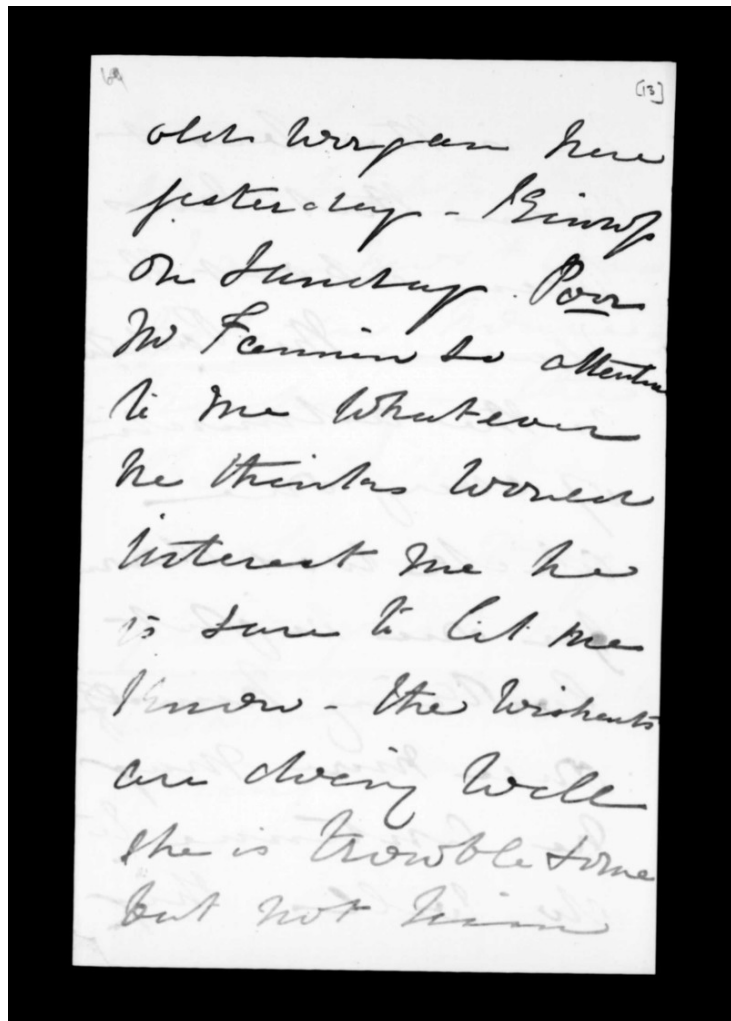 [13]
old Worgan here
yesterday -
on Sunday. Poor
Mr Fannin so attentive
to me Whatever
he thinks Would
interest me he
is sure to let me
Know - the Wishents
are doing Well
she is trouble some
but not him